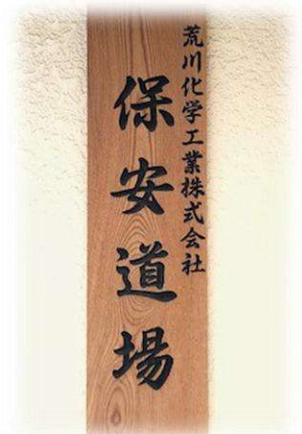 荒川化学工業株式会社
保安道場